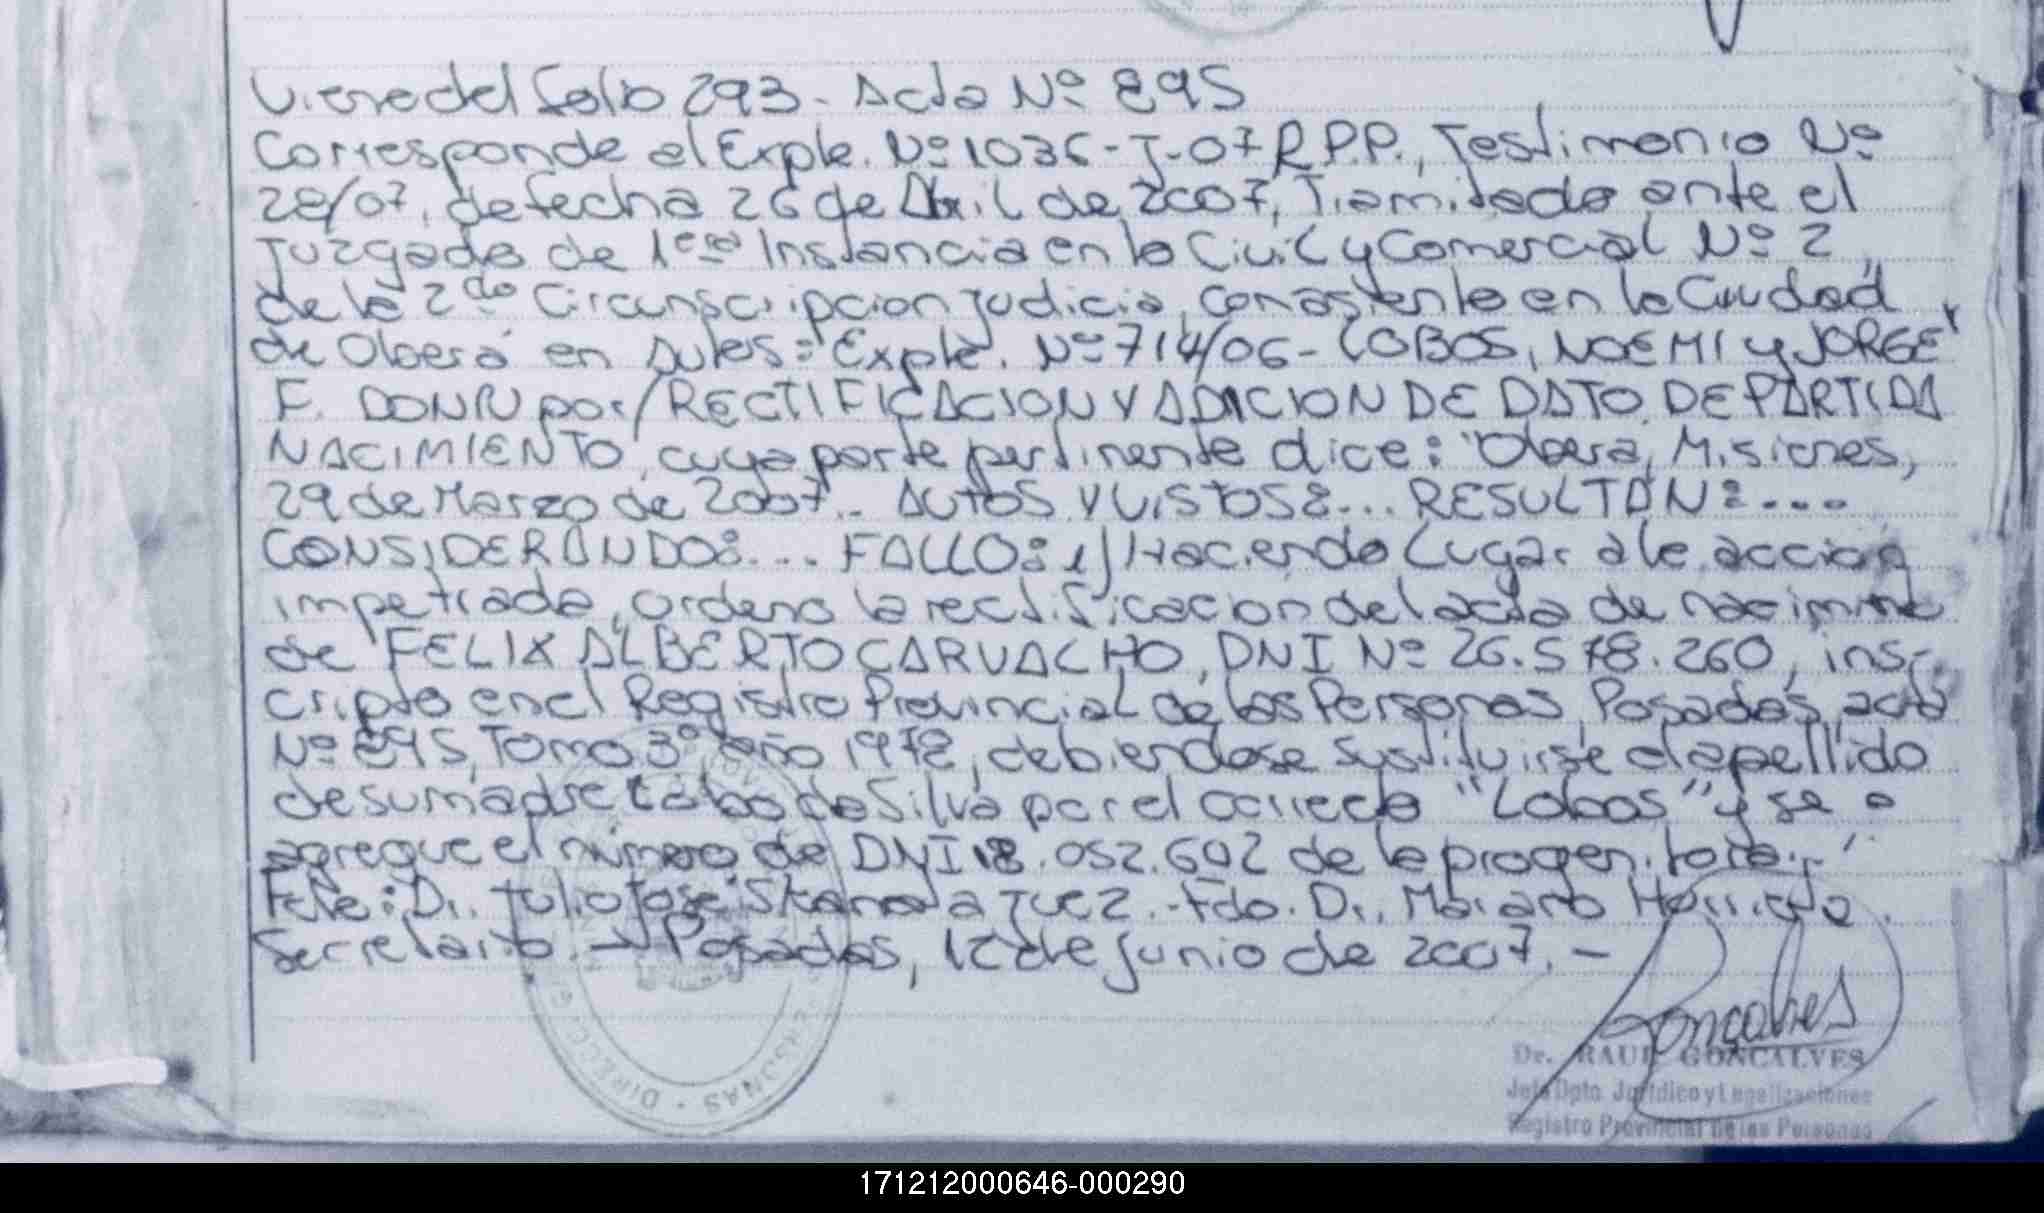 Viene del folio 293 - Acta Nº 895
Corresponde al Expte. Nº 1036-J-07 R.P.P., Testimonio Nº
28/07, de fecha 26 de Abril de 2007, Tramitado ante el
Juzgado de 1era Instancia en lo Civil y Comercial Nº 2,
de la 2da Circunscripcion Judicial, con asiento en la Ciudad
de Oberá en autos: Expte. Nº 714/06 - LOBOS, NOEMI y JORGE
F. por/RECTIFICACION Y ADICION DE DATO DE PARTIDA
NACIMIENTO, cuya parte pertinente dice: "Obera, Misiones,
29 de Marzo de 2007.. AUTOS Y VISTOS:... RESULTAN:....
CONSIDERANDO:... FALLO: 1) Haciendo Lugar a la accion
impetrada, ordeno la rectificacion del acta de nacimiento
de FELIX ALBERTO CARVALHO, DNI Nº 26.578.260, ins-
cripto en el Registro Provincial de las Personas, Posadas, acta
Nº 895, Tomo 3º año 1978, debiendose sustituirse el apellido
de su madre da Silva por el correcto "Lobos" y se
agregue el número de DNI 18.052.602 de la progenitora.-"
Fdo: Dr. Julio José Juez.- Fdo. Dr.
Secretario. - Posadas, 12 de Junio de 2007. -
Gonçalves
Dr. RAUL GONCALVES
Jefe Dpto. Jurídico y Legalizaciones
Registro Provincial de las Personas
PERSONAS · DIRECC
171212000646-000290